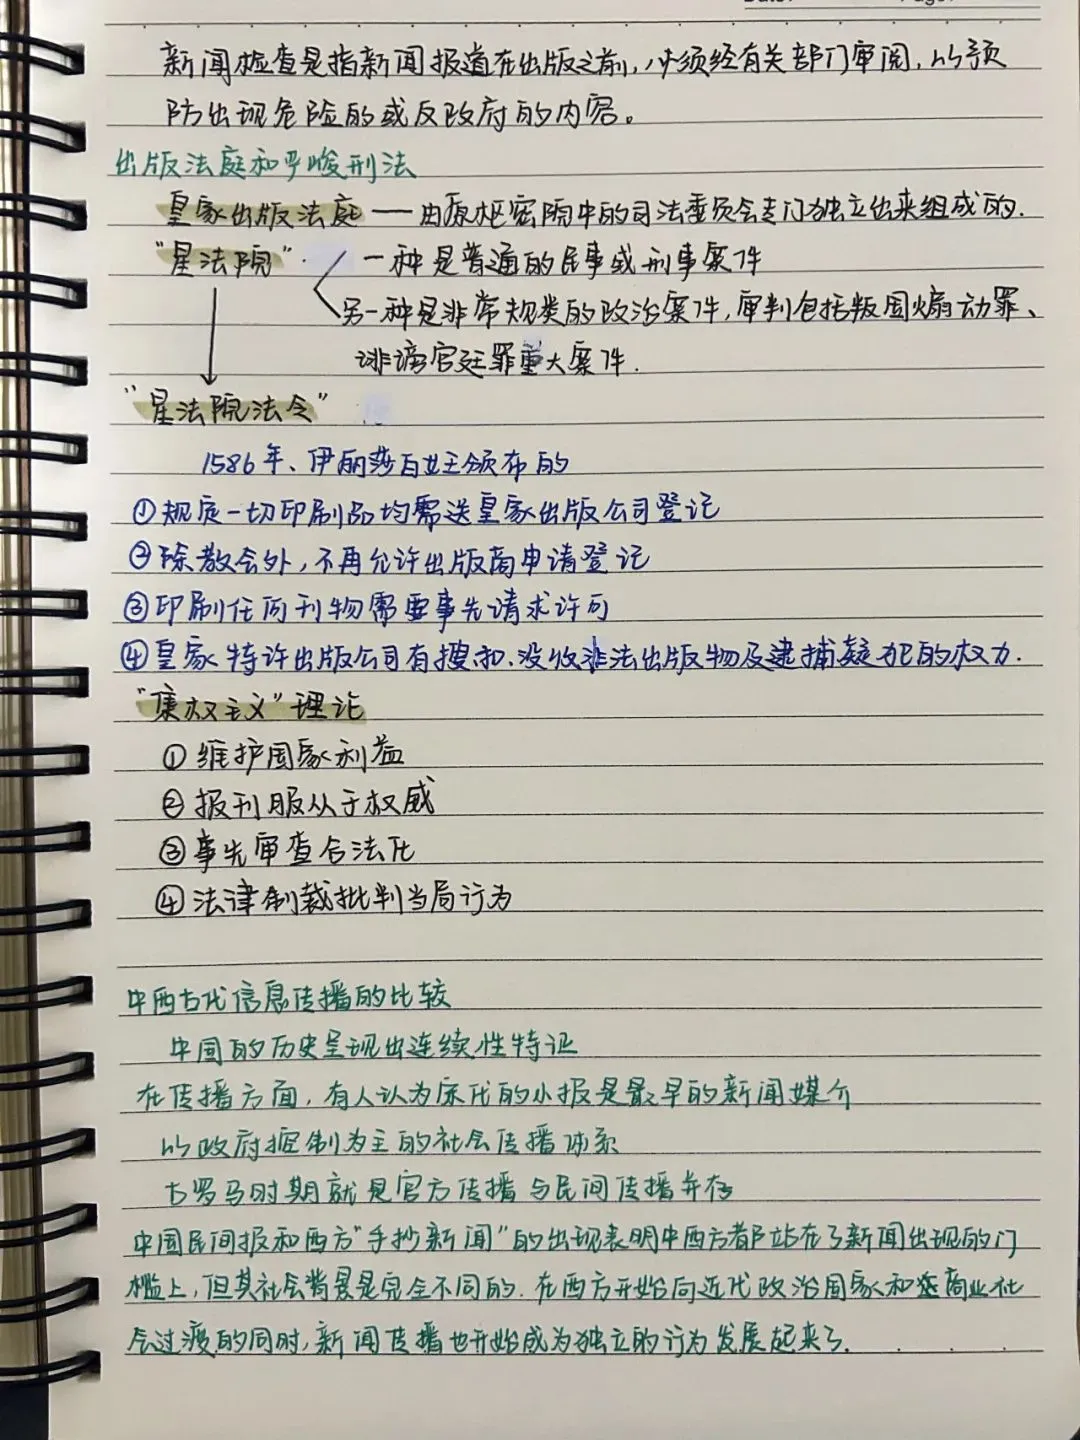 新闻检查是指新闻报道在出版之前,必须经有关部门审阅,以预
防出现危险的或反政府的内容。
出版法庭和严峻刑法
皇家出版法庭——由原枢密院中的司法委员会专门独立出来组成的.
“星法院”. 一种是普通的民事或刑事案件
另一种是非常规类的政治案件,审判包括叛国煽动罪、
诽谤宫廷罪重大案件.
“星法院法令”
1586年、伊丽莎白女王颁布的
①规定一切印刷品均需送皇家出版公司登记
②除教会外,不再允许出版商申请登记
③印刷任何刊物需要事先请求许可
④皇家特许出版公司有搜扣、没收非法出版物及逮捕疑犯的权力.
“集权主义”理论
①维护国家利益
②报刊服从于权威
③事先审查合法化
④法律制裁批判当局行为
中西古代信息传播的比较
中国的历史呈现出连续性特征
在传播方面,有人认为宋代的小报是最早的新闻媒介
以政府控制为主的社会传播体系
古罗马时期就是官方传播与民间传播并存
中国民间报和西方“手抄新闻”的出现表明中西方都站在了新闻出现的门
槛上,但其社会背景是完全不同的.在西方开始向近代政治国家和商业社
会过渡的同时,新闻传播也开始成为独立的行为发展起来了.